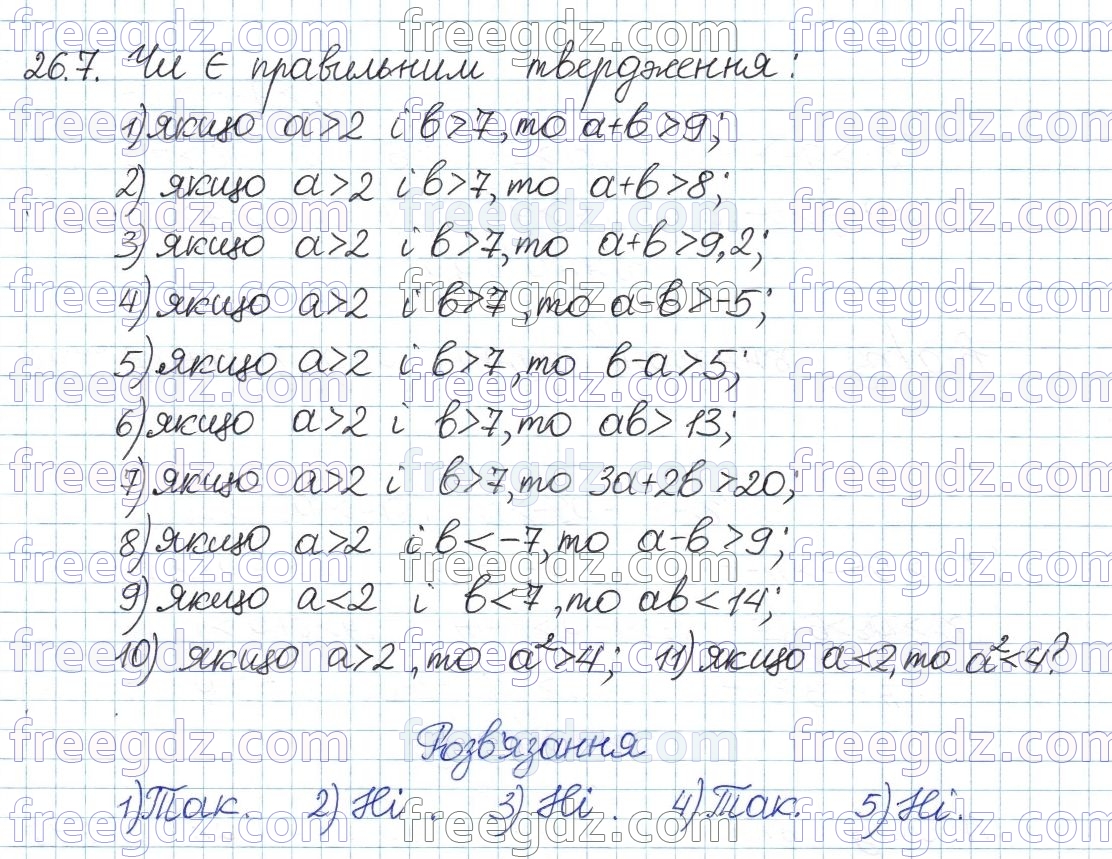 26.7. Чи є правильним твердження:
1) якщо a>2 і b>7, то a+b>9;
2) якщо a>2 і b>7, то a+b>8;
3) якщо a>2 і b>7, то a+b>9,2;
4) якщо a>2 і b>7, то a-b>-5;
5) якщо a>2 і b>7, то b-a>5;
6) якщо a>2 і b>7, то ab>13;
7) якщо a>2 і b>7, то 3a+2b>20;
8) якщо a>2 і b<-7, то a-b>9;
9) якщо a<2 і b<7, то ab<14;
10) якщо a>2, то a²>4; 11) якщо a<2, то a²<4?
Розв'язання
1) Так. 2) Ні. 3) Ні. 4) Так. 5) Ні.